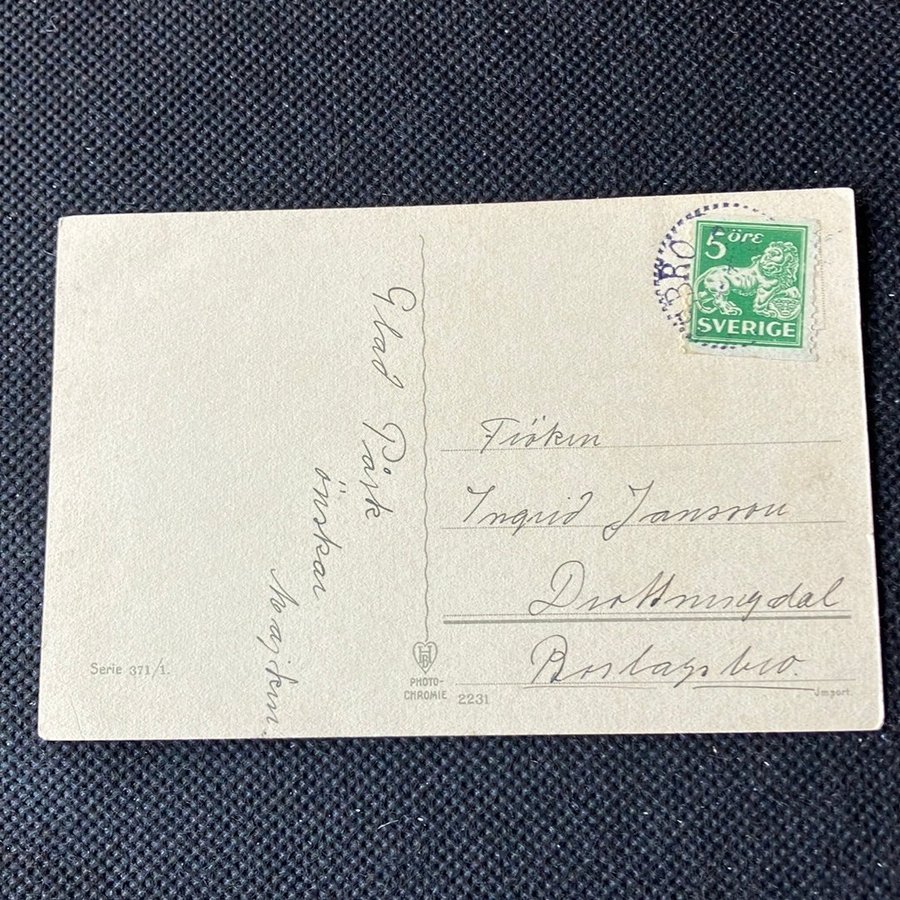 Glad Påsk
önskar
Majken.
BRO
5 öre
SVERIGE
Fröken
Ingrid Jansson
Drottningdal
Roslagsbro.
Serie 371/1.
HB
PHOTO-
CHROMIE
2231
Import.